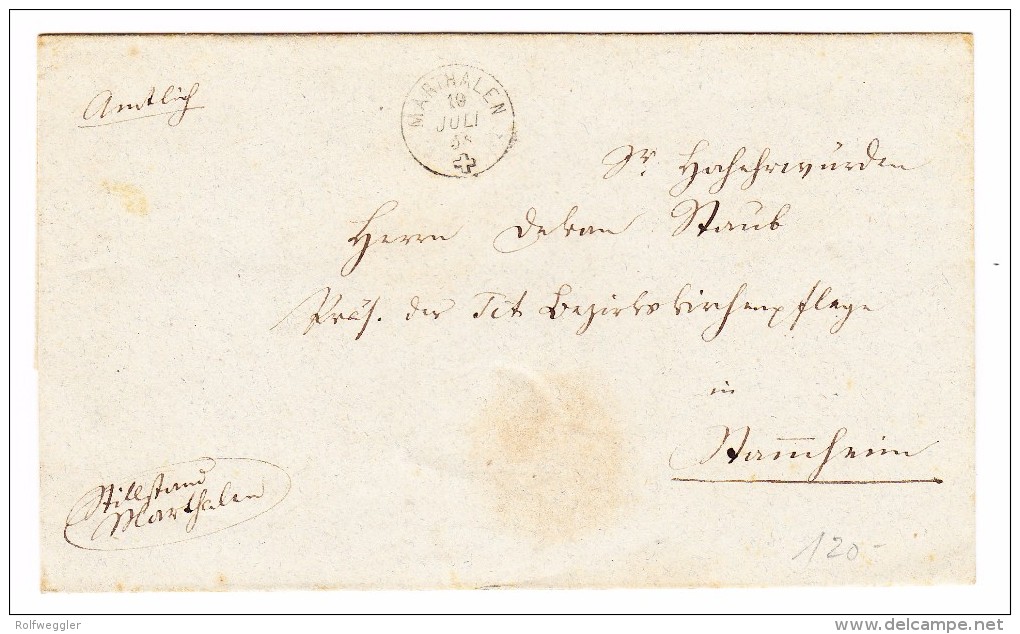 Amtlich
MARTHALEN
19
JULI
58
Sr. Hochehrwürden
Herrn Dekan Staub
Präs. der Tit Bezirkskirchenpflege
in
Stam̅heim
Stillstand
Marthalen
120-
Rolfweggler
www.delcampe.net